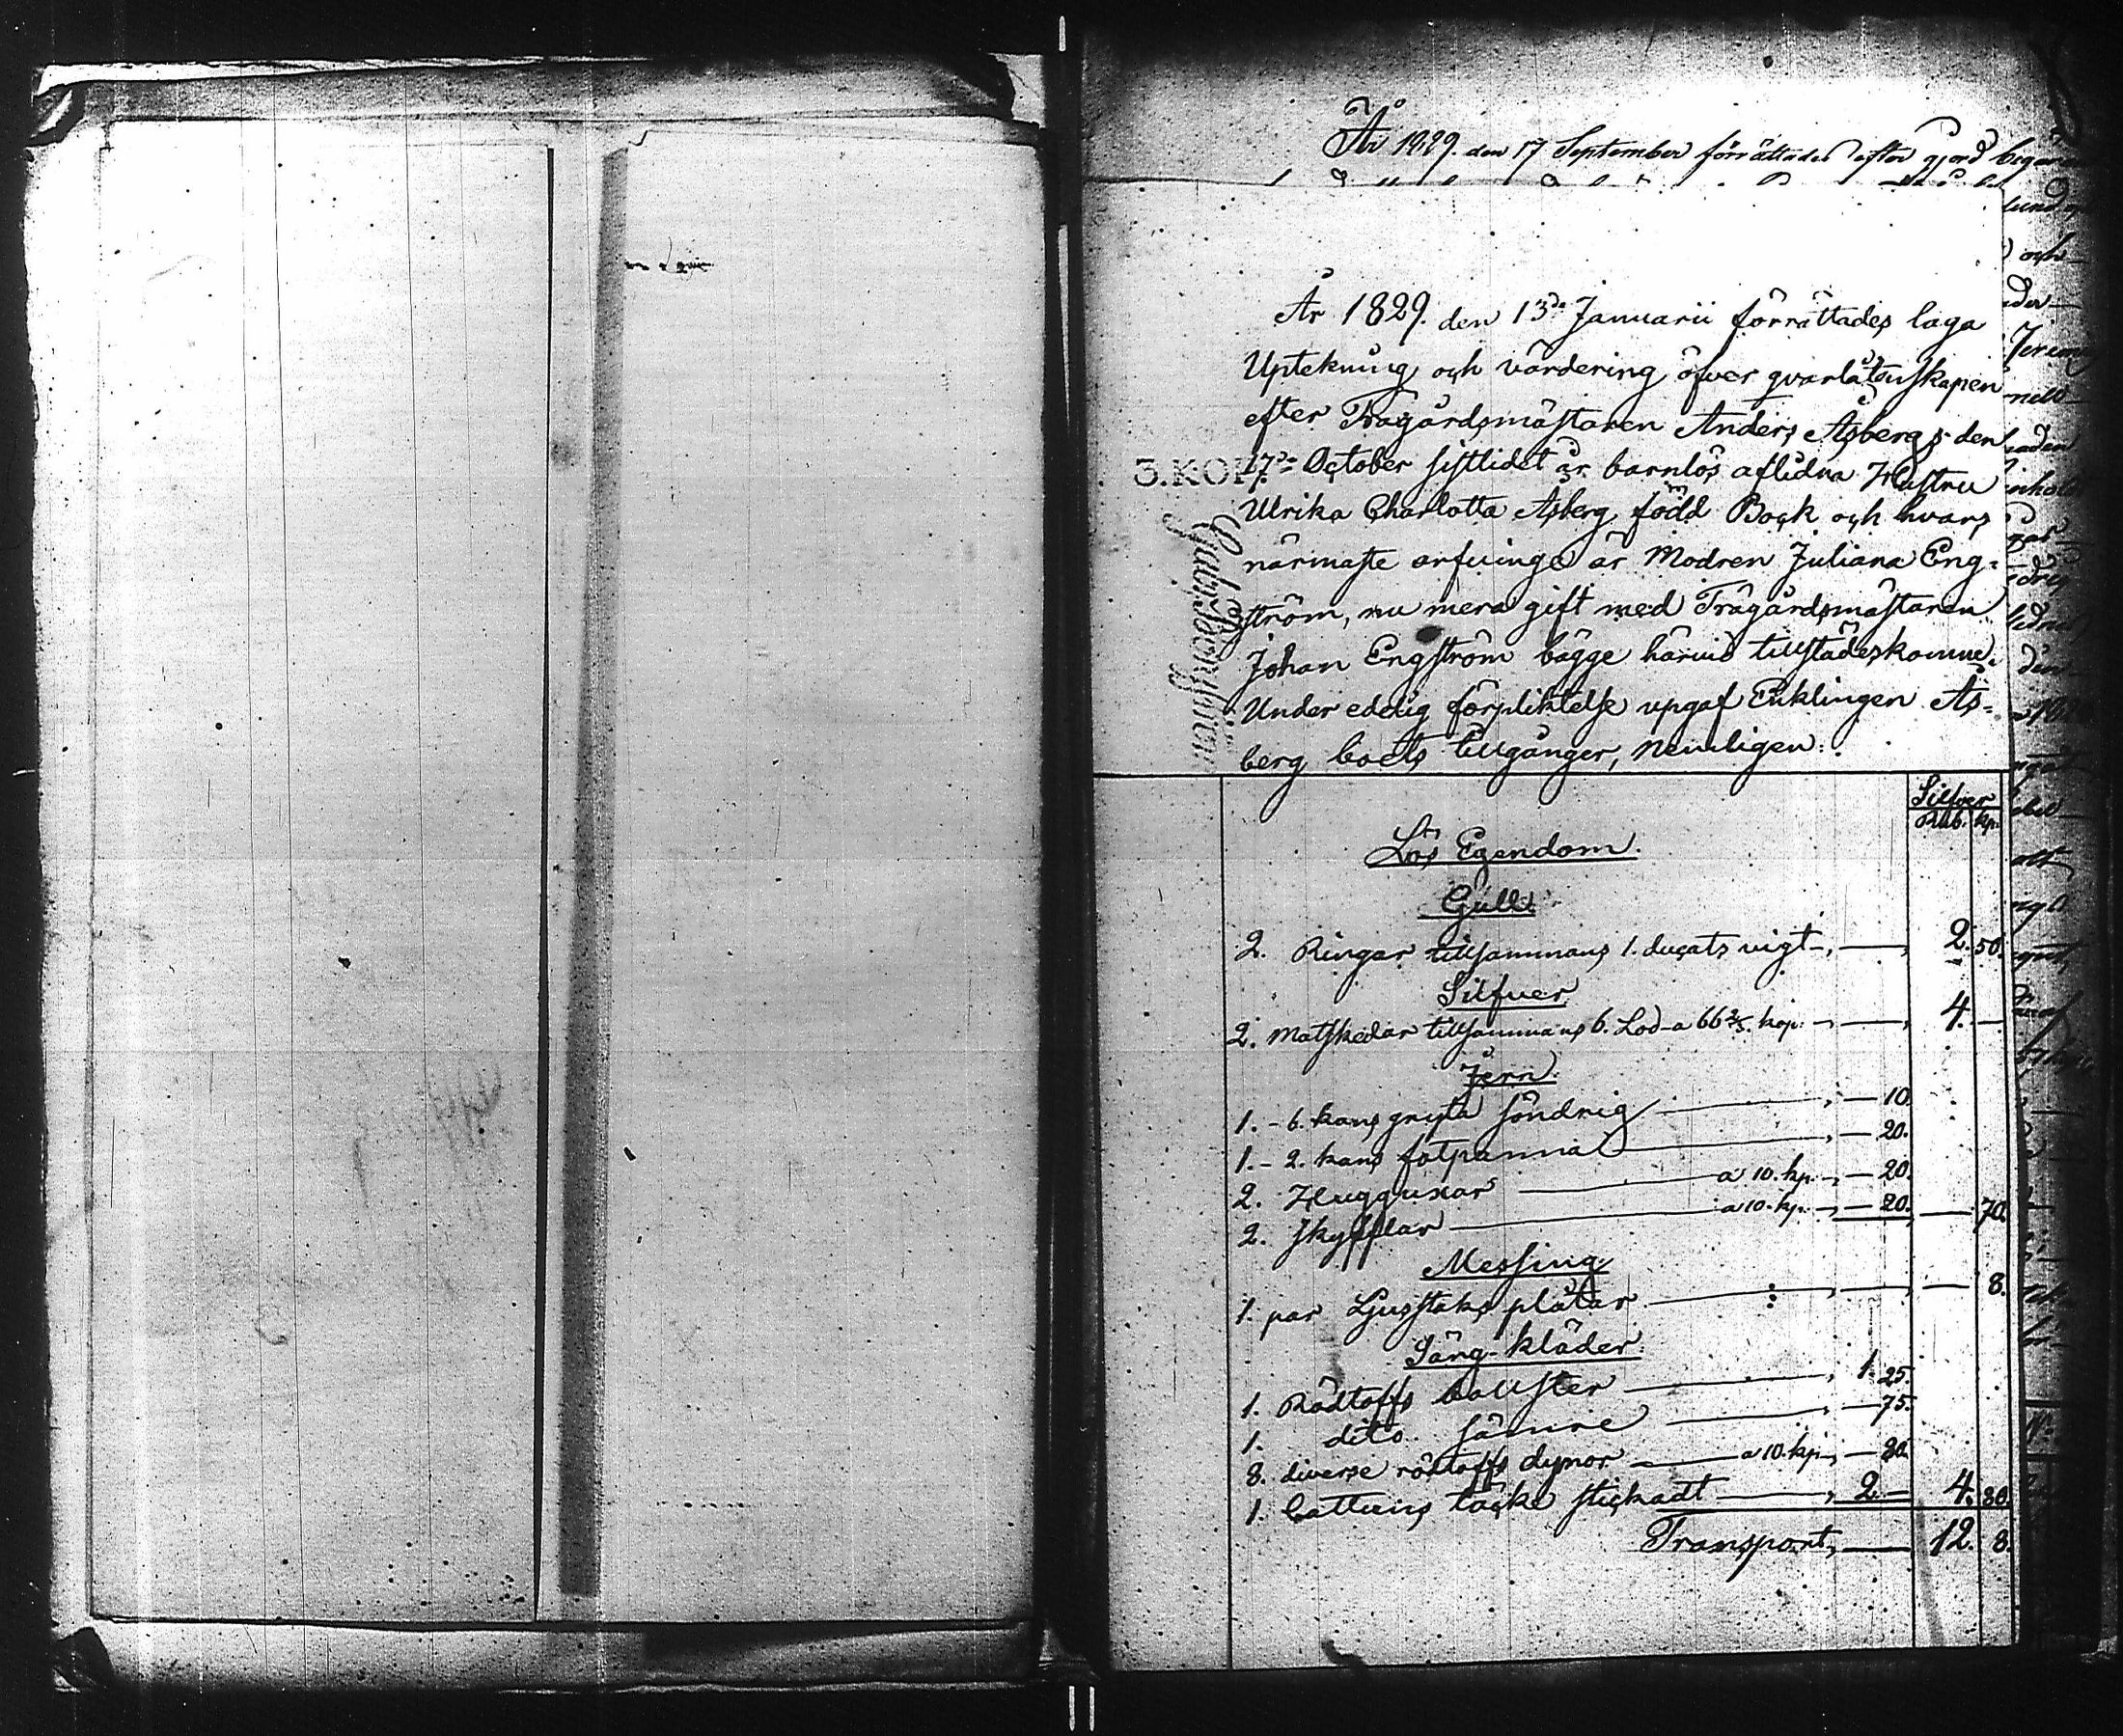 År 1829. den 17 September förrättades efter gjord begäran
År 1829. den 13de Januarii förrättades laga
Upteknuig och värdering öfver qvarlåtenskapen
efter Trägårdsmästaren Anders Åsbergs den
17de October sisttidet år barnlös aflidna Hustru
3.KOP
Ulrika Charlotta Åsberg född Bock och hvars
närmaste arfvinge är Modren Juliana Eng=
ström, nu mera gift med Trägårdsmästaren
Johan Engström bägge härvid tillstädeskomne.
Under edelig förpliktelse upgaf Enklingen Ås=
berg boets tillgånger, nemligen:
Silfver
Rub. kp.
Lös Egendom.
Gull.
2. Ringar tillsammans 1. ducats vigt 2. 50.
Silfver
2. Matskedar tillsammans 6. Lod a 66 2/3. kop: 4. —
Jern.
1. - 6. kans gryta söndrig — 10.
1. - 2. kans fotpanna — 20.
2. Hugguxar a 10. kp. — 20.
2. skyfflar a 10. kp. — 20. — 70.
Messing
1. par Ljusstaks plåtar — 8.
Säng-kläder.
1. Rödtoffs bollster 1. 25.
1. dito sämre — 75.
8. diverse rödtoffs dynor a 10. kp. — 80.
1. Cattuns täcke stickadt 2. — 4. 80.
Transport, 12. 8.